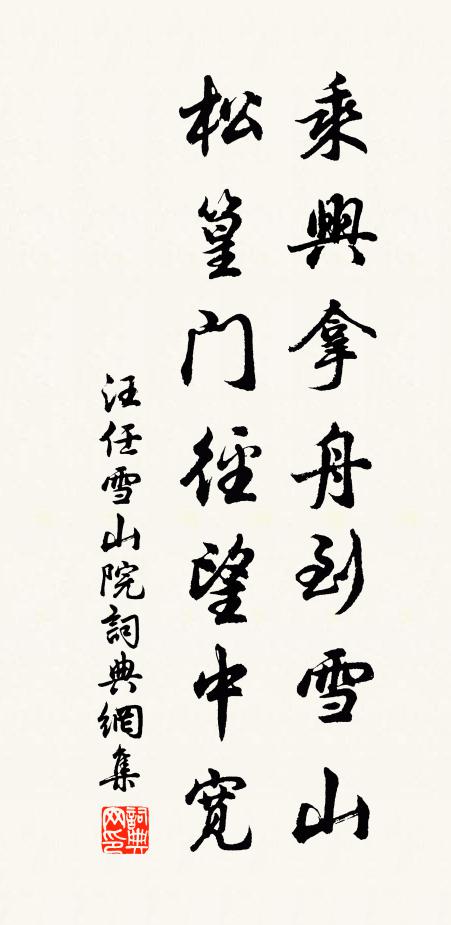 乘興拿舟到雪山
松篁門徑望中寬
汪任雪山院詞典網集
詞典网印